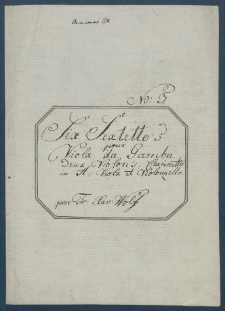 No: 5
Six Sextetto's
pour
Viola da Gamba
Deux Violon's Clarinetto
in A, Viola et Violoncello
par Fr: Wolf